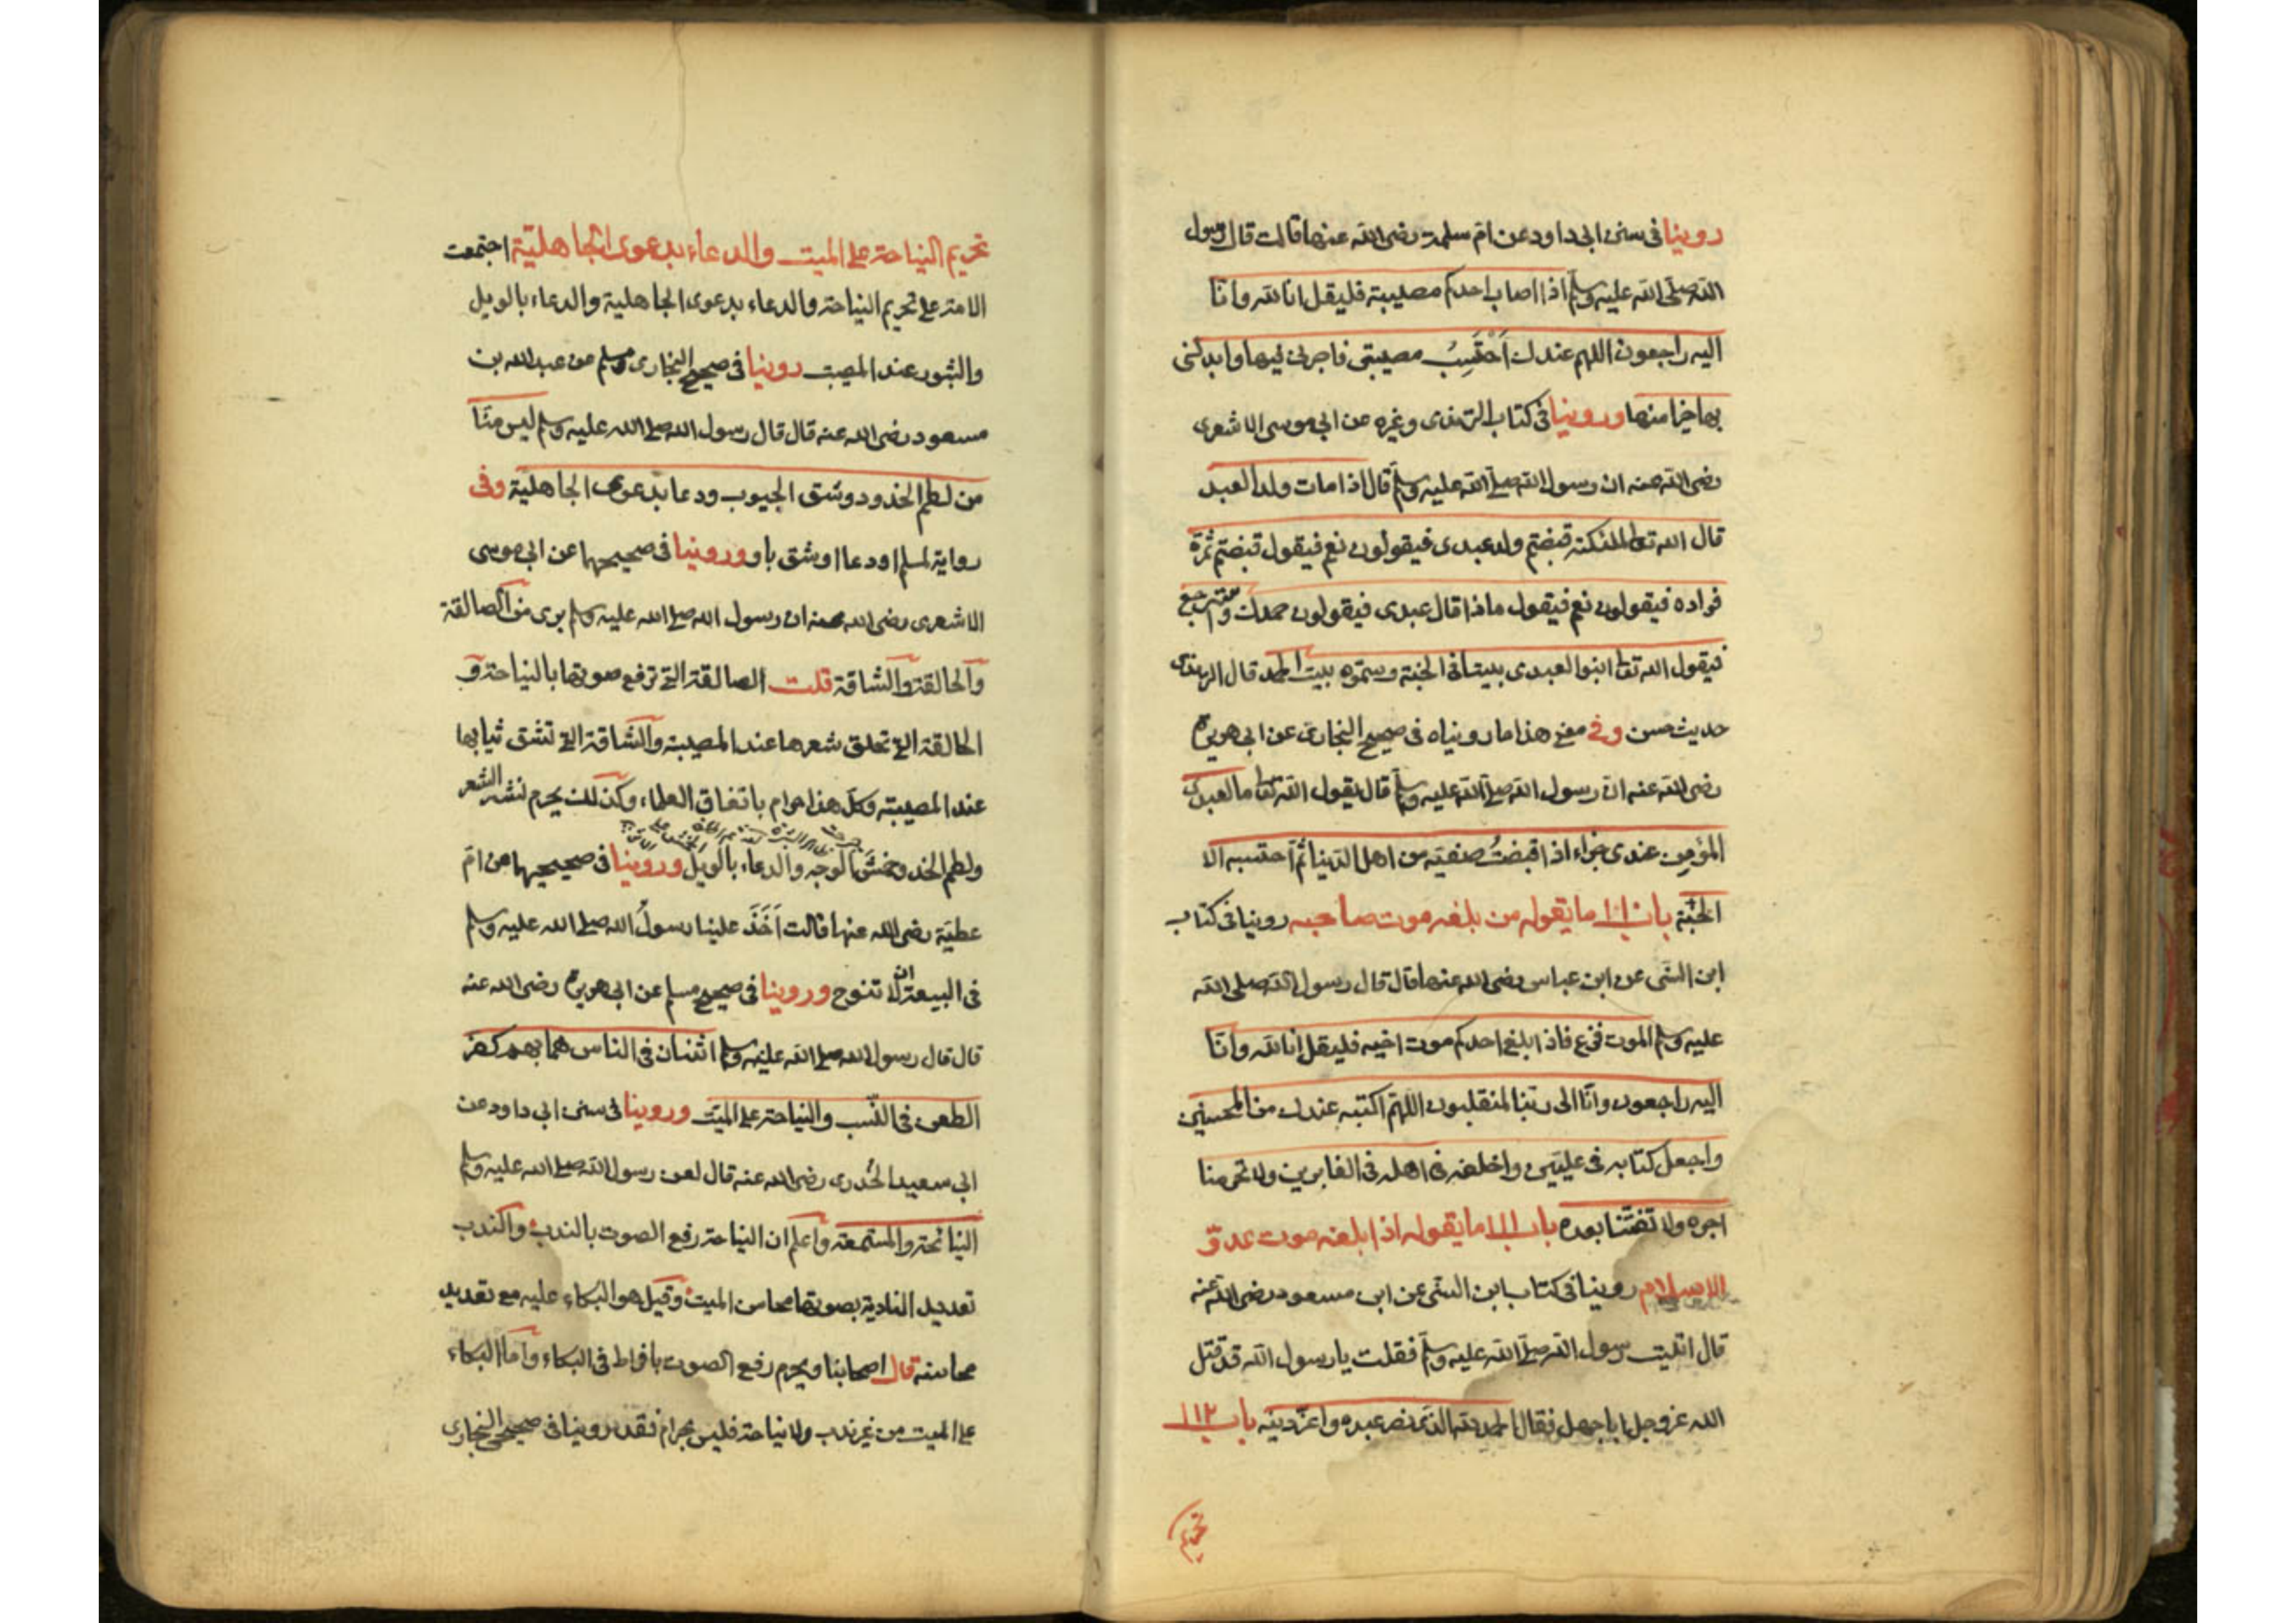 روينا فى سنن ابى داود عن ام سلمة رضى الله عنها قالت قال رسول
الله صلى الله عليه وسلم اذا اصاب احدكم مصيبة فليقل انا لله وانا
اليه راجعون اللهم عندك اَحْتَسِبُ مصيبتى فاجرنى فيها وابدلنى
بها خيرا منها وروينا فى كتاب الترمذى وغيره عن ابى موسى الاشعرى
رضى الله عنه ان رسول الله صلى الله عليه وسلم قال اذا مات ولد العبد
قال الله تعالى لملئكته قبضتم ولد عبدى فيقولون نعم فيقول قبضتم ثمرة
فواده فيقولون نعم فيقول ماذا قال عبدى فيقولون حمدك واسترجع
فيقول الله تعالى ابنوا لعبدى بيتا فى الجنة وسموه بيت الحمد قال الترمذى
حديث حسن وفى معنى هذا ما رويناه فى صحيح البخارى عن ابى هريرة
رضى الله عنه ان رسول الله صلى الله عليه وسلم قال يقول الله تعالى ما لعبدى
المؤمن عندى جزاء اذا قبضتُ صفيّه من اهل الدنيا ثم احتسبه الا
الجنة باب ١١٠ ما يقوله من بلغه موت صاحبه روينا فى كتاب
ابن السنى عن ابن عباس رضى الله عنهما قال قال رسول الله صلى الله
عليه وسلم الموت فزع فاذا بلغ احدكم موت اخيه فليقل انا لله وانا
اليه راجعون وانا الى ربنا لمنقلبون اللهم اكتبه عندك من المحسنين
واجعل كتابه فى عليين واخلفه فى اهله فى الغابرين ولا تحرمنا
اجره ولا تفتنا بعده باب ١١١ ما يقوله اذا بلغه موت عدوّ
الاسلام روينا فى كتاب ابن السنى عن ابن مسعود رضى الله عنه
قال اتيت رسول الله صلى الله عليه وسلم فقلت يا رسول الله قد قتل
الله عز وجل ابا جهل فقال الحمد لله الذى نصر عبده واعز دينه باب ١١٢
تحريم
تحريم النياحة على الميت والدعاء بدعوى الجاهلية اجتمعت
الامة على تحريم النياحة والدعاء بدعوى الجاهلية والدعاء بالويل
والثبور عند المصيبة روينا فى صحيح البخارى ومسلم عن عبد الله بن
مسعود رضى الله عنه قال قال رسول الله صلى الله عليه وسلم ليس منا
من لطم الخدود وشق الجيوب ودعا بدعوى الجاهلية وفى
رواية لمسلم او دعا او شق باو وروينا فى صحيحيهما عن ابى موسى
الاشعرى رضى الله عنه ان رسول الله صلى الله عليه وسلم برى من الصالقة
والحالقة والشاقة قلت الصالقة التى ترفع صوتها بالنياحة و
الحالقة التى تحلق شعرها عند المصيبة والشاقة التى تشق ثيابها
عند المصيبة وكل هذا حرام باتفاق العلماء وكذلك يحرم نشر الشعر
ولطم الخد وخمش الوجه والدعاء بالويل وروينا فى صحيحيهما عن ام
عطية رضى الله عنها قالت اَخَذَ علينا رسولُ الله صلى الله عليه وسلم
فى البيعة ان لا تنوح وروينا فى صحيح مسلم عن ابى هريرة رضى الله عنه
قال قال رسول الله صلى الله عليه وسلم اثنتان فى الناس هما بهم كفر
الطعن فى النسب والنياحة على الميت وروينا فى سنن ابى داود عن
ابى سعيد الخُدرى رضى الله عنه قال لعن رسول الله صلى الله عليه وسلم
النائحة والمستمعة واعلم ان النياحة رفع الصوت بالندب والندب
تعديد النادبة بصوتها محاسن الميت وقيل هو البكاء عليه مع تعديد
محاسنه قال اصحابنا ويحرم رفع الصوت بافراط فى البكاء واما البكاء
على الميت من غير ندب ولا نياحة فليس بحرام فقد روينا فى صحيح البخارى